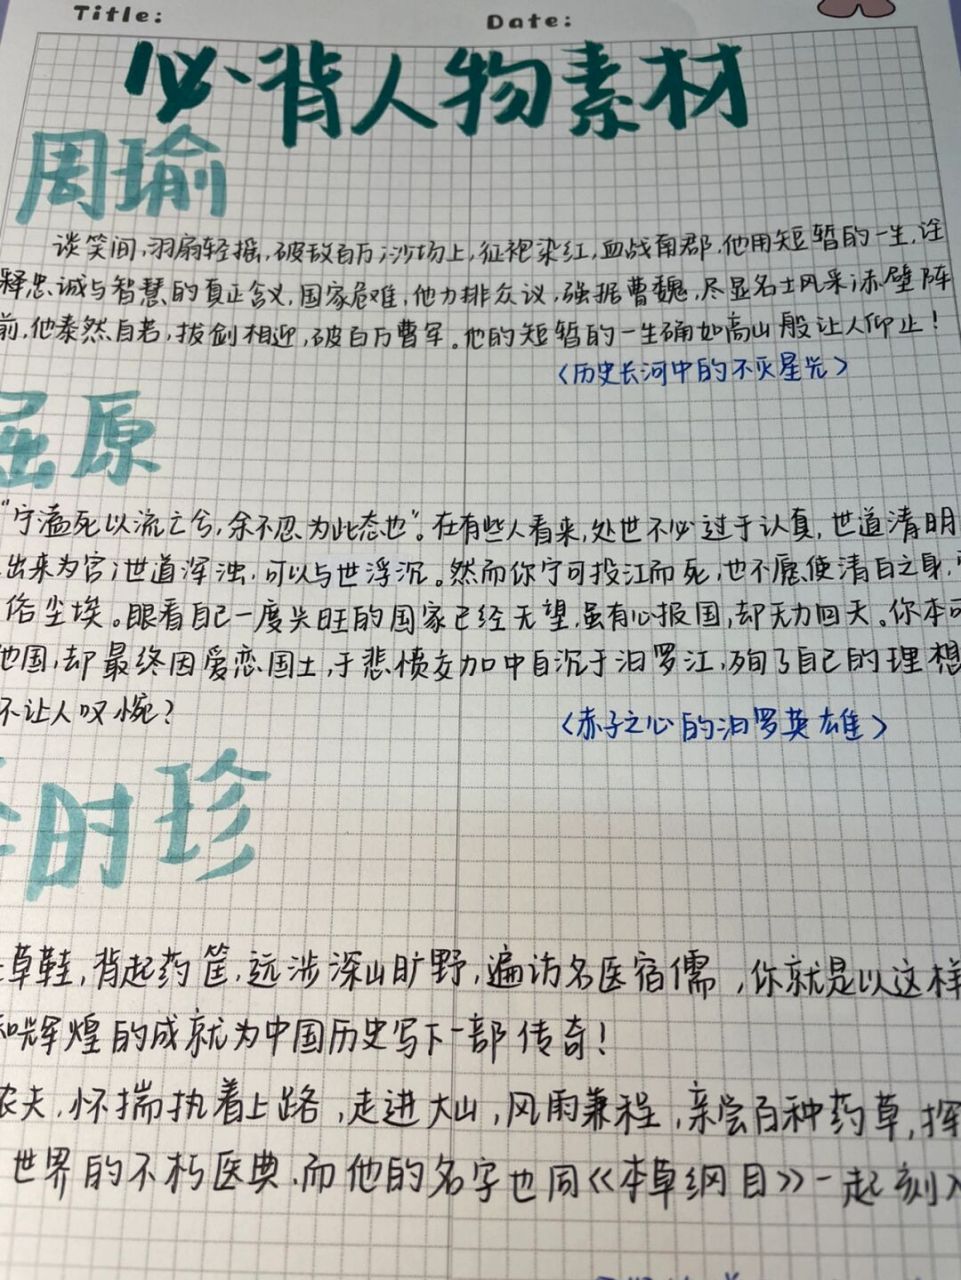 Title:
Date:
必背人物素材
周瑜
谈笑间,羽扇轻摇,破敌百万;沙场上,征袍染红,血战南郡.他用短暂的一生,诠
释忠诚与智慧的真正含义,国家危难,他力排众议,强据曹魏,尽显名士风采;赤壁阵
前,他泰然自若,拔剑相迎,破百万曹军。他的短暂的一生确如高山般让人仰止!
〈历史长河中的不灭星光〉
屈原
"宁溘死以流亡兮,余不忍为此态也"。在有些人看来,处世不必过于认真,世道清明
出来为官;世道浑浊,可以与世浮沉。然而你宁可投江而死,也不愿使清白之身,
俗尘埃。眼看自己一度兴旺的国家已经无望,虽有心报国,却无力回天。你本可
他国,却最终因爱恋国土,于悲愤交加中自沉于汨罗江,殉了自己的理想
不让人叹惋?
〈赤子之心的汨罗英雄〉
时珍
草鞋,背起药筐,远涉深山旷野,遍访名医宿儒,你就是以这样
和辉煌的成就为中国历史写下一部传奇!
农夫,怀揣执着上路,走进大山,风雨兼程,亲尝百种药草,挥
世界的不朽医典.而他的名字也同《本草纲目》一起刻入